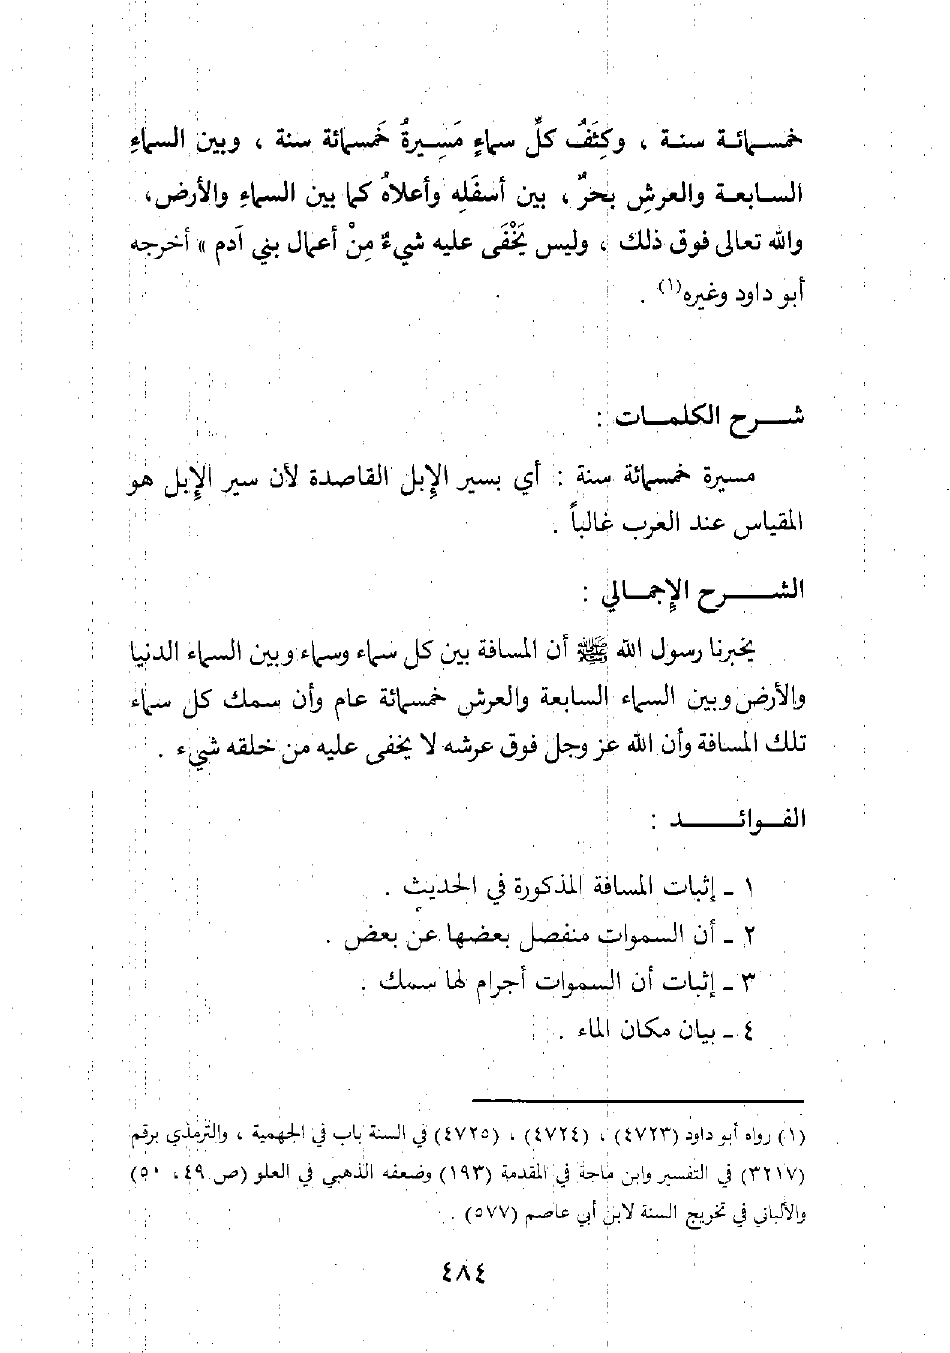 خمسـمائـة سنـة ، وكِثَفُ كلِّ سماءٍ مَسِيرةُ خَمسمائة سنة ، وبين السماءِ
السـابعـة والعرشِ بحرٌ ، بين أسفَلِه وأعلاهُ كما بين السماءِ والأرض،
والله تعالى فوق ذلك ، وليس يَخْفَى عليه شيءٌ مِنْ أعمال بني آدم » أخرجه
أبو داود وغيره(١) .
شـــرح الكلمـــات :
مسيرة خمسمائة سنة : أي بسير الإبل القاصدة لأن سير الإبل هو
المقياس عند العرب غالباً .
الشـــــرح الإجمـالي :
يخبرنا رسول الله ﷺ أن المسافة بين كل سماء وسماء وبين السماء الدنيا
والأرض وبين السماء السابعة والعرش خمسمائة عام وأن سمك كل سماء
تلك المسافة وأن الله عز وجل فوق عرشه لا يخفى عليه من خلقه شيء .
الفـوائــــد :
١ ـ إثبات المسافة المذكورة في الحديث .
٢ ـ أن السموات منفصل بعضها عن بعض .
٣ ـ إثبات أن السموات أجرام لها سمك .
٤ ـ بيان مكان الماء .
(١) رواه أبو داود (٤٧٢٣) ، (٤٧٢٤) ، (٤٧٢٥) في السنة باب في الجهمية ، والترمذي برقم
(٣٢١٧) في التفسير وابن ماجة في المقدمة (١٩٣) وضعفه الذهبي في العلو (ص ٤٩، ٥٠)
والألباني في تخريج السنة لابن أبي عاصم (٥٧٧) .
٤٨٤